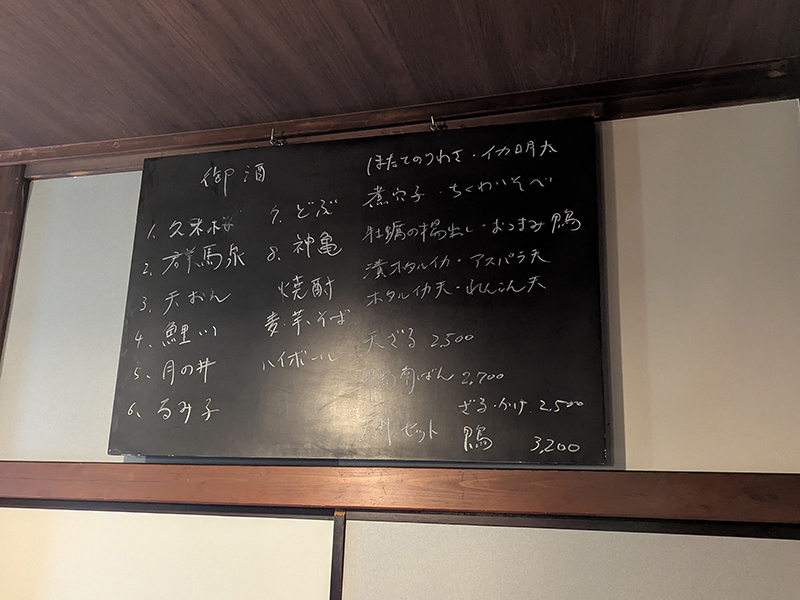 御酒
1. 久米桜
2. 群馬泉
3. 天おん
4. 鯉川
5. 月の井
6. るみ子
7. どぶ
8. 神亀
焼酎
麦・芋・そば
ハイボール
ほたてのうわさ・イカ明太
煮穴子・ちくわいそべ
牡蠣の揚出し・おつまみ鴨
漬ホタルイカ・アスパラ天
ホタルイカ天・れんこん天
天ざる 2,500
南ばん 2,700
ざる・かけ 2,500
セット 鴨 3,200